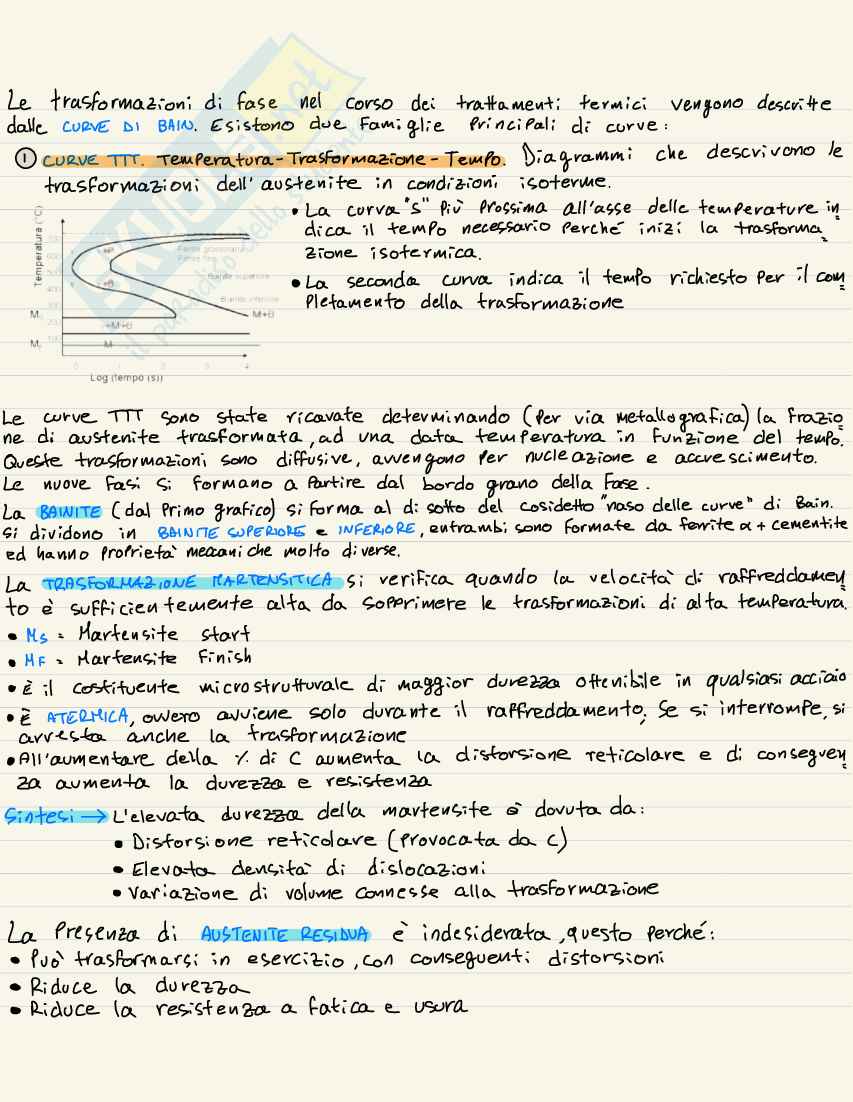 Le trasformazioni di fase nel corso dei trattamenti termici vengono descritte
dalle CURVE DI BAIN. Esistono due famiglie principali di curve:
① CURVE TTT. Temperatura-Trasformazione-Tempo. Diagrammi che descrivono le
trasformazioni dell'austenite in condizioni isoterme.
• La curva "S" più prossima all'asse delle temperature in
dica il tempo necessario perché inizi la trasforma
zione isotermica.
• La seconda curva indica il tempo richiesto per il com
pletamento della trasformazione
Temperatura (°C)
700
600
500
400
300
200
100
Perlite fine
Bainite superiore
Bainite inferiore
M+B
0 1 2 3 4
Log (tempo (s))
SKUOLA.net
il paradiso dello studente
Le curve TTT sono state ricavate determinando (per via metallografica) la frazio
ne di austenite trasformata, ad una data temperatura in funzione del tempo.
Queste trasformazioni sono diffusive, avvengono per nucleazione e accrescimento.
Le nuove fasi si formano a partire dal bordo grano della fase.
La BAINITE (dal primo grafico) si forma al di sotto del cosidetto "naso delle curve" di Bain.
si dividono in BAINITE SUPERIORE e INFERIORE, entrambi sono formate da ferrite α + cementite
ed hanno proprietà meccaniche molto diverse.
La TRASFORMAZIONE MARTENSITICA si verifica quando la velocità di raffreddamen
to è sufficientemente alta da sopprimere le trasformazioni di alta temperatura.
• Ms = Martensite start
• MF = Martensite Finish
• È il costituente microstrutturale di maggior durezza ottenibile in qualsiasi acciaio
• È ATERMICA, ovvero avviene solo durante il raffreddamento. Se si interrompe, si
arresta anche la trasformazione
• All'aumentare della % di C aumenta la distorsione reticolare e di conseguen
za aumenta la durezza e resistenza
Sintesi → L'elevata durezza della martensite è dovuta da:
• Distorsione reticolare (provocata da C)
• Elevata densità di dislocazioni
• Variazione di volume connesse alla trasformazione
La presenza di AUSTENITE RESIDUA è indesiderata, questo perché:
• Può trasformarsi in esercizio, con conseguenti distorsioni
• Riduce la durezza
• Riduce la resistenza a fatica e usura